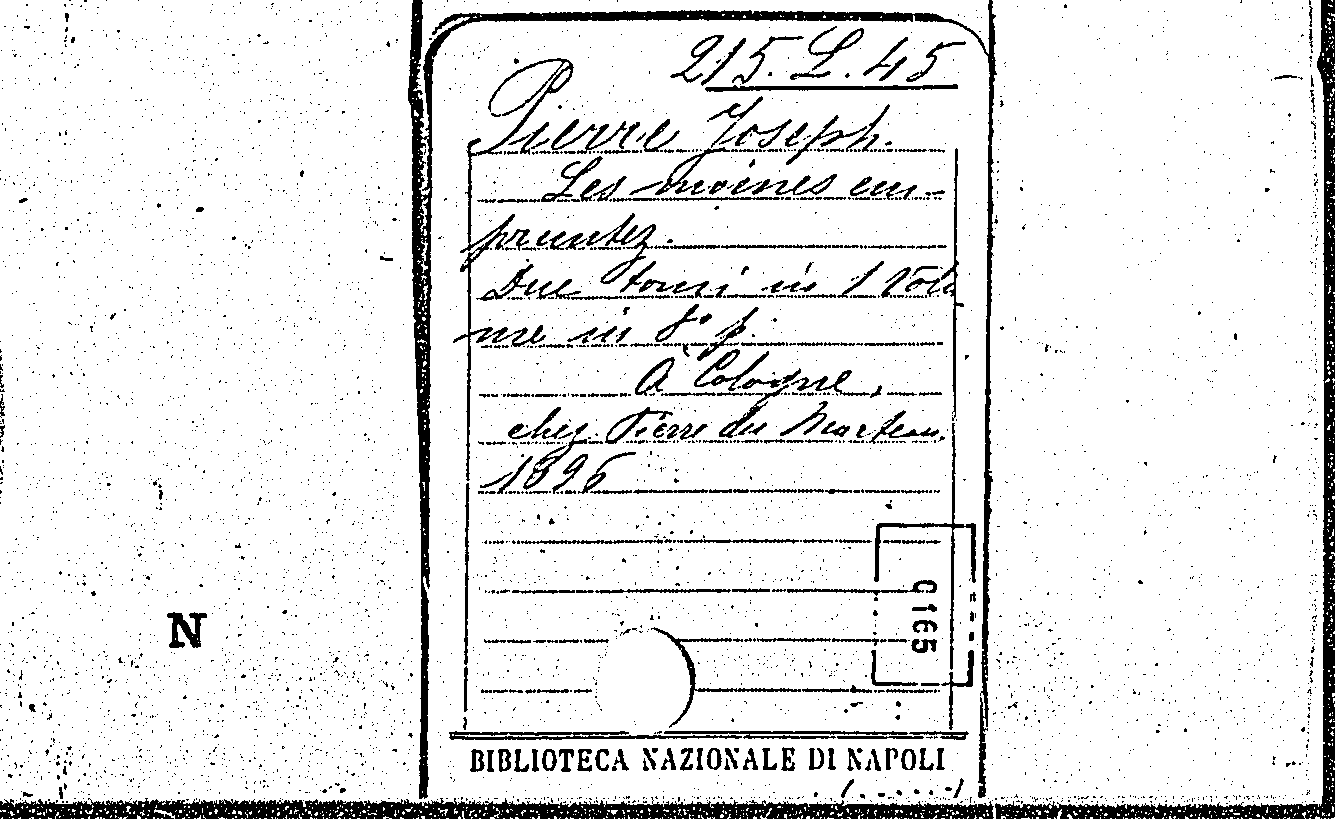 215. L. 45
Pierre Joseph.
Les moines em-
pruntez.
Due tomi in 1 Volu
me in 8° p.
À Cologne,
chez Pierre du Marteau.
1896
0165
N
BIBLIOTECA NAZIONALE DI NAPOLI